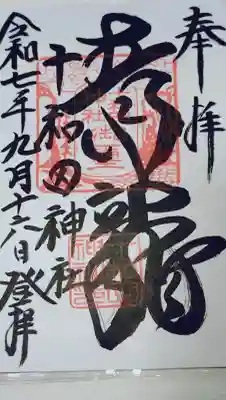 奉拝
青龍
十和田神社
令和七年九月十六日登拝